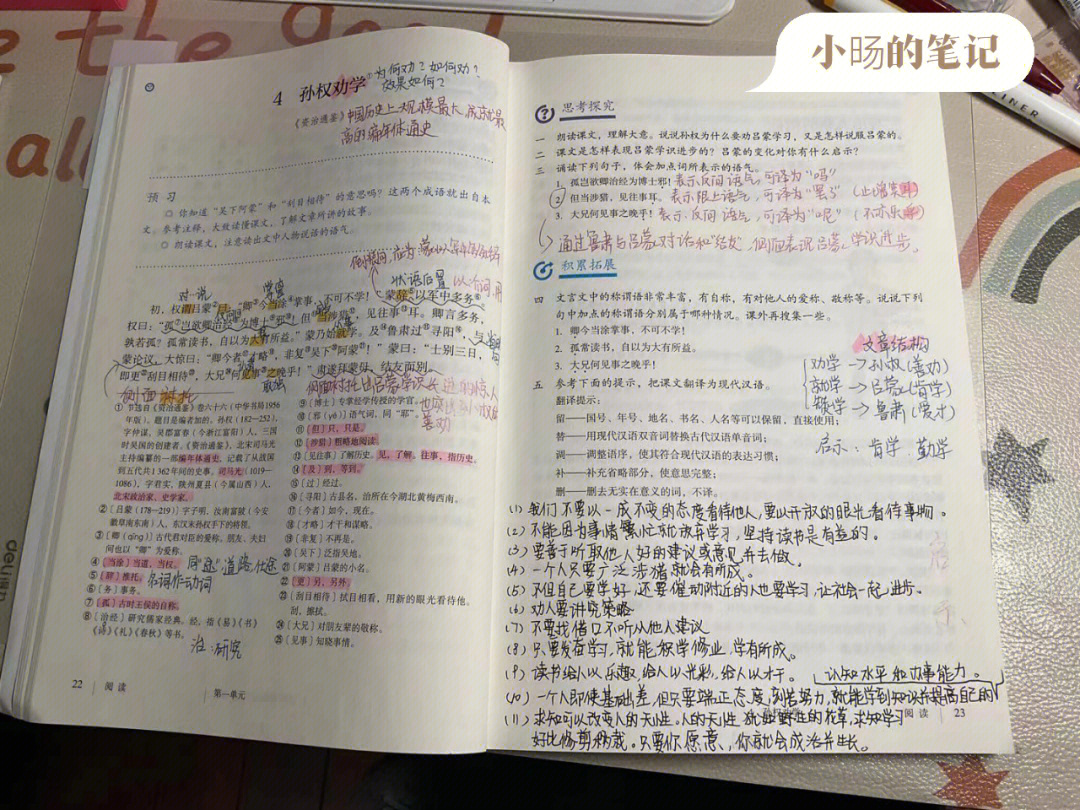 小旸的笔记
4 孙权劝学①
为何劝？如何劝？
效果如何？
《资治通鉴》中国历史上规模最大、成就最
高的编年体通史
预习
◎ 你知道“吴下阿蒙”和“刮目相待”的意思吗？这两个成语就出自本
文。参考注释，大致读懂课文，了解文章所讲的故事。
◎ 朗读课文，注意读出文中人物说话的语气。
状语后置
初，权谓吕蒙②曰：“卿③今当涂④掌事，不可不学！”蒙辞⑤以军中多务⑥。
权曰：“孤⑦岂欲卿治经⑧为博士⑨邪⑩！但⑪当涉猎⑫，见往事⑬耳。卿言多务，
孰若孤？孤常读书，自以为大有所益。”蒙乃始就学。及⑭鲁肃过⑮寻阳⑯，与
蒙论议，大惊曰：“卿今者⑰才略⑱，非复⑲吴下⑳阿蒙㉑！”蒙曰：“士别三日，
即更㉒刮目相待㉓，大兄㉔何见事㉕之晚乎！”肃遂拜蒙母，结友而别。
侧面衬托
① 节选自《资治通鉴》卷六十六（中华书局1956
年版）。题目是编者加的。孙权（182—252），
字仲谋，吴郡富春（今浙江富阳）人，三国
时吴国的创建者。《资治通鉴》，北宋司马光
主持编纂的一部编年体通史，记载了从战国
到五代共1362年间的史事。司马光（1019—
1086），字君实，陕州夏县（今属山西）人，
北宋政治家、史学家。
②〔吕蒙（178—219）〕字子明，汝南富陂（今安
徽阜南东南）人，东汉末孙权手下的将领。
③〔卿（qīng）〕古代君对臣的爱称。朋友、夫妇
间也以“卿”为爱称。
④〔当涂〕当道，当权。
同“途”，道路，仕途
⑤〔辞〕推托。
名词作动词
⑥〔务〕事务。
⑦〔孤〕古时王侯的自称。
⑧〔治经〕研究儒家经典。经，指《易》《书》
《诗》《礼》《春秋》等书。
治：研究
⑨〔博士〕专掌经学传授的学官。
⑩〔邪（yé）〕语气词，同“耶”。
⑪〔但〕只，只是。
⑫〔涉猎〕粗略地阅读。
⑬〔见往事〕了解历史。见，了解。往事，指历史。
⑭〔及〕到，等到。
⑮〔过〕经过。
⑯〔寻阳〕古县名，治所在今湖北黄梅西南。
⑰〔今者〕如今，现在。
⑱〔才略〕才干和谋略。
⑲〔非复〕不再是。
⑳〔吴下〕泛指吴地。
㉑〔阿蒙〕吕蒙的小名。
㉒〔更〕另，另外。
㉓〔刮目相待〕拭目相看，用新的眼光看待他。
刮，擦拭。
㉔〔大兄〕对朋友辈的敬称。
㉕〔见事〕知晓事情。
22 阅读 第一单元
思考探究
一 朗读课文，理解大意。说说孙权为什么要劝吕蒙学习，又是怎样说服吕蒙的。
二 课文是怎样表现吕蒙学识进步的？吕蒙的变化对你有什么启示？
三 诵读下列句子，体会加点词所表示的语气。
1. 孤岂欲卿治经为博士邪！表示反问语气，可译为“吗”
2. 但当涉猎，见往事耳。表示限止语气，可译为“罢了”
3. 大兄何见事之晚乎！表示反问语气，可译为“呢”
通过鲁肃与吕蒙对话和“结友”侧面表现吕蒙学识进步。
积累拓展
四 文言文中的称谓语非常丰富，有自称，有对他人的爱称、敬称等。说说下列
句中加点的称谓语分别属于哪种情况。课外再搜集一些。
1. 卿今当涂掌事，不可不学！
2. 孤常读书，自以为大有所益。
3. 大兄何见事之晚乎！
五 参考下面的提示，把课文翻译为现代汉语。
翻译提示：
留——国号、年号、地名、书名、人名等可以保留，直接使用；
替——用现代汉语双音词替换古代汉语单音词；
调——调整语序，使其符合现代汉语的表达习惯；
补——补充省略部分，使意思完整；
删——删去无实在意义的词，不译。
文章结构
劝学→孙权（善劝）
就学→吕蒙（肯学）
赞学→鲁肃（爱才）
启示：肯学、勤学
(1) 我们不要以一成不变的态度看待他人，要以开放的眼光看待事物。
(2) 不能因为事情繁忙就放弃学习，坚持读书是有益的。
(3) 要善于听取他人好的建议或意见并去做。
(4) 一个人只要广泛涉猎就会有所成。
(5) 不但自己要学好，还要催动附近的人也要学习，让社会一起进步。
(6) 劝人要讲究策略
(7) 不要找借口不听从他人建议
(8) 只要发奋学习，就能积学修业，学有所成。
(9) 读书给人以乐趣，给人以光彩，给人以才干。
认知水平和办事能力。
(10) 一个人即使基础差，但只要端正态度，刻苦努力，就能学到知识并提高自己的
(11) 求知可以改变人的天性。人的天性犹如野生的花草，求知学习
好比修剪移栽。只要你愿意，你就会成洽并生长。
启
示
阅读 23